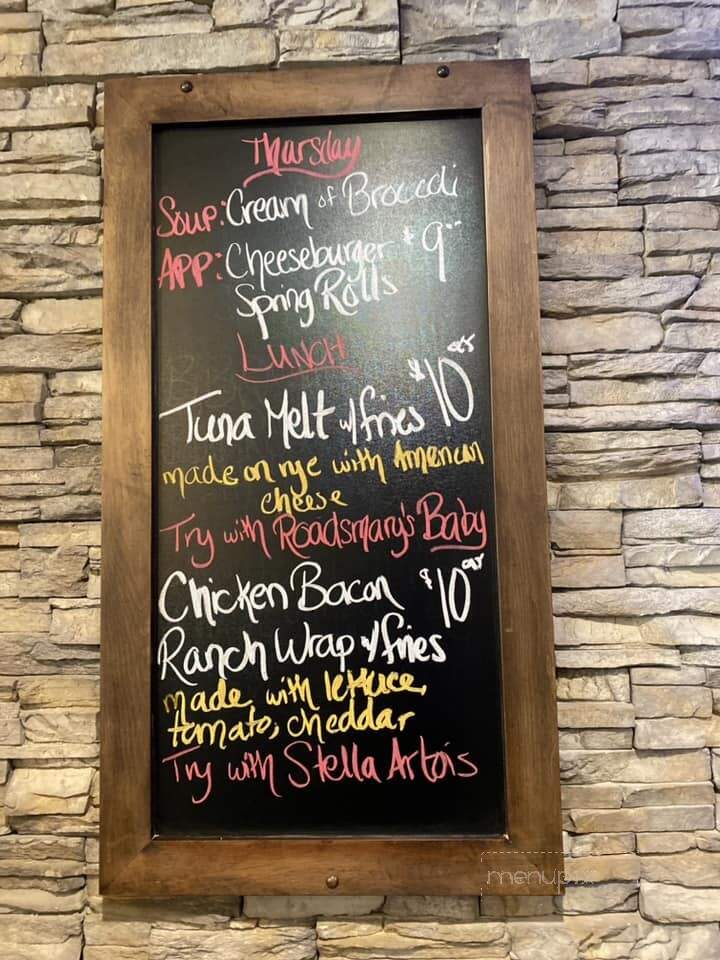 Thursday
Soup: Cream of Broccoli
App: Cheeseburger $9
Spring Rolls
LUNCH
Tuna Melt w/ fries $10
made on rye with American
cheese
Try with Roadsmary's Baby
Chicken Bacon $10
Ranch Wrap w/ fries
made with lettuce,
tomato, cheddar
Try with Stella Artois
menupix